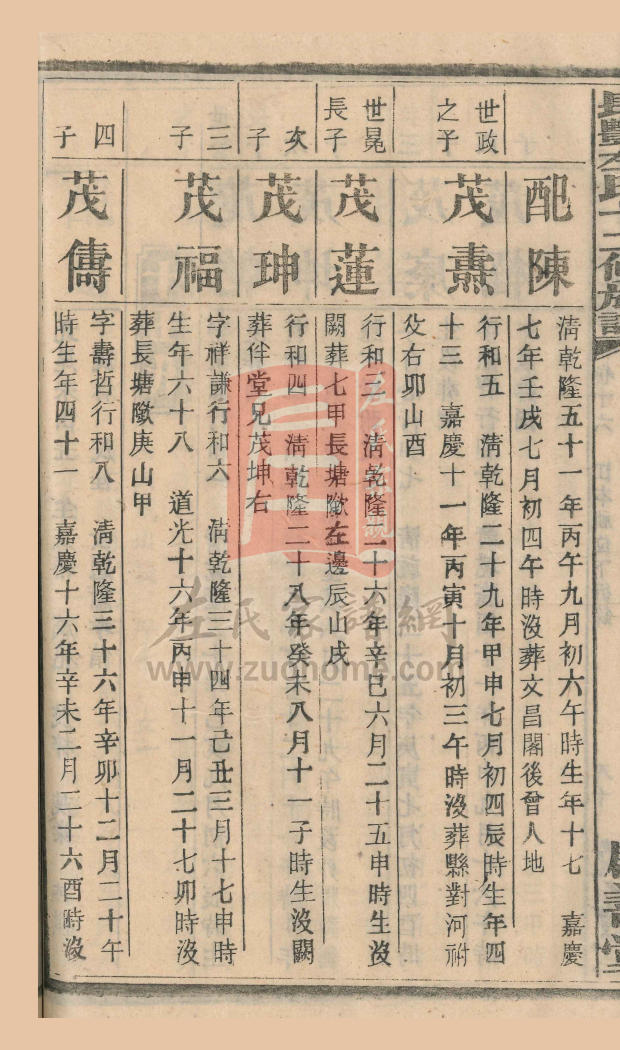 配陳
清乾隆五十一年丙午九月初六午時生年十七 嘉慶
七年壬戌七月初四午時沒葬文昌閣後曾人地
世政
之子
茂燾
行和五 清乾隆二十九年甲申七月初四辰時生年四
十三 嘉慶十一年丙寅十月初三午時沒葬縣對河祔
父右卯山酉
世晃
長子
茂蓮
行和三 清乾隆二十六年辛巳六月二十五申時生沒
闕葬七甲長塘墩左邊辰山戌
次
子
茂珅
行和四 清乾隆二十八年癸未八月十一子時生沒闕
葬伴堂兄茂坤右
三
子
茂福
字祥謙行和六 清乾隆三十四年己丑三月十七申時
生年六十八 道光十六年丙申十一月二十七卯時沒
葬長塘墩庚山甲
四
子
茂儔
字壽哲行和八 清乾隆三十六年辛卯十二月二十午
時生年四十一 嘉慶十六年辛未二月二十六酉時沒
左氏家譜網
www.zuohome.com